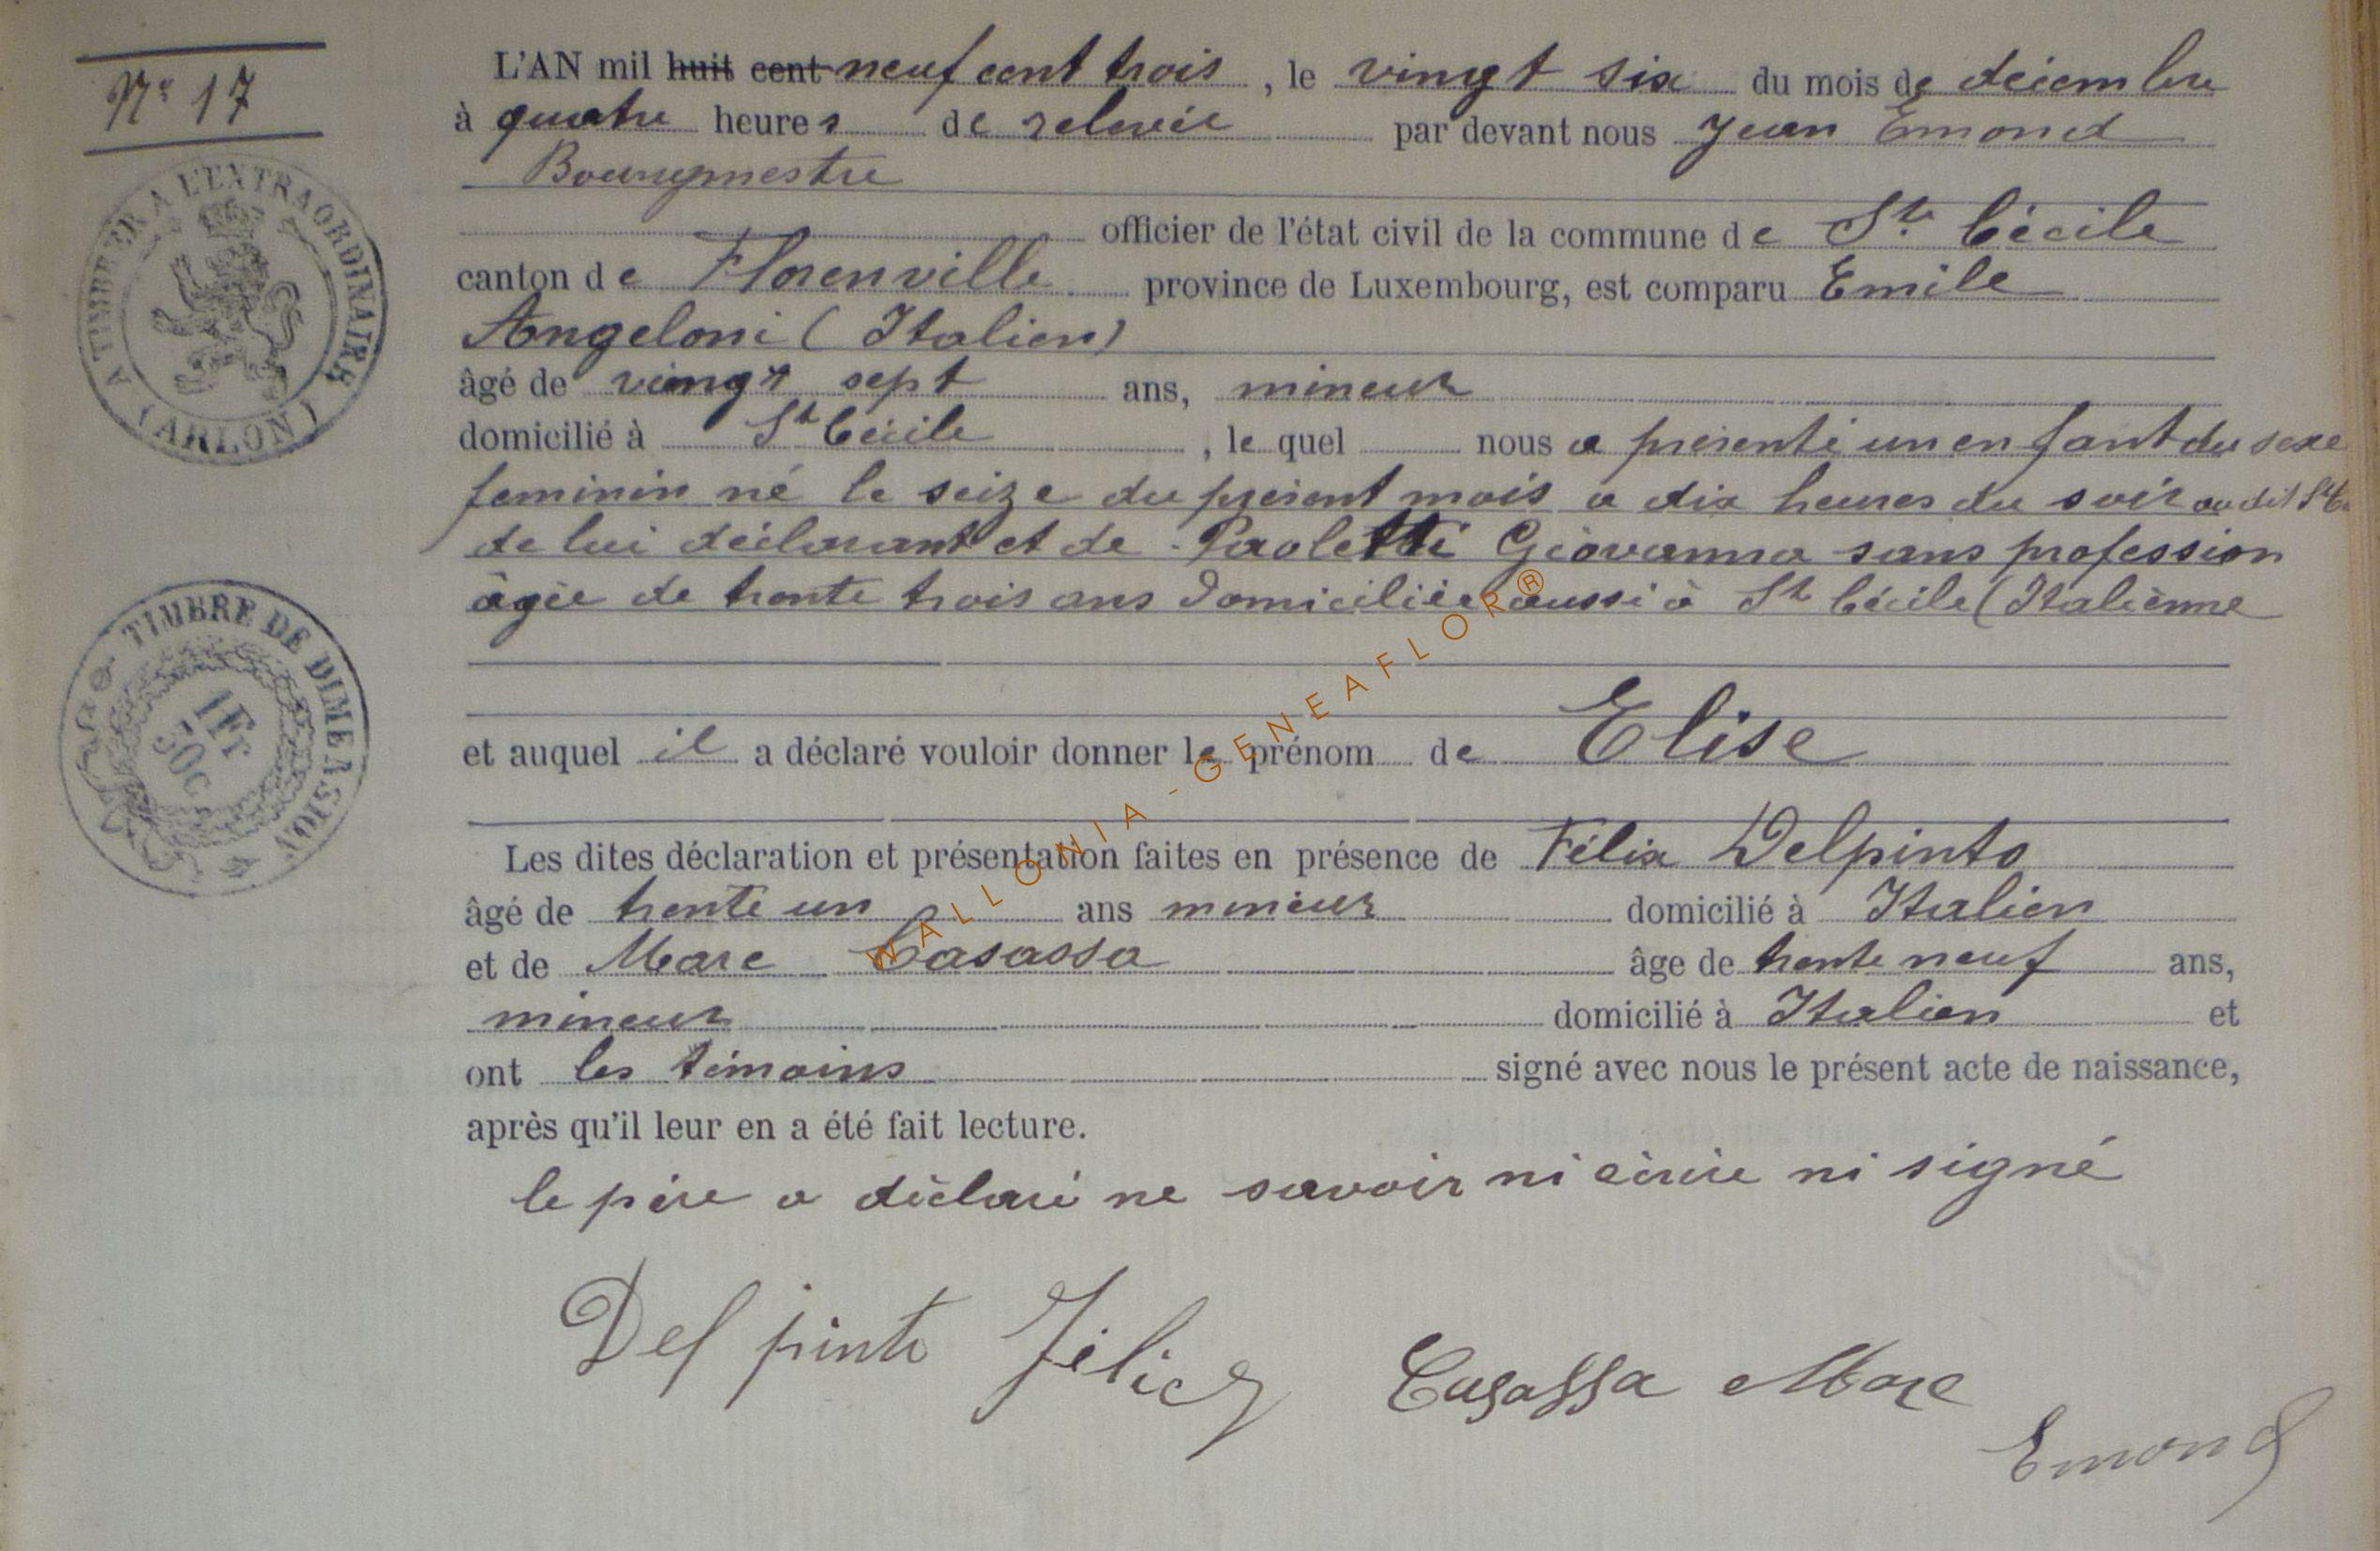 N° 17
L'AN mil huit cent neuf cent trois, le vingt six du mois de décembre
à quatre heures de relevée par devant nous Jean Emond
Bourgmestre
officier de l'état civil de la commune de Ste Cécile
canton de Florenville province de Luxembourg, est comparu Emile
Angeloni (Italien)
âgé de vingt sept ans, mineur
domicilié à Ste Cécile, le quel nous a présenté un enfant du sexe
feminin né le seize du présent mois a dix heures du soir au dit
de lui déclarant et de Paoletti Giovanna sans profession
âgée de trente trois ans domiciliée aussi à Ste Cécile (Italiènne
et auquel il a déclaré vouloir donner le prénom de Elise
Les dites déclaration et présentation faites en présence de Félix Delpinto
âgé de trente un ans mineur domicilié à Italien
et de Marc Casassa âge de trente neuf ans,
mineur domicilié à Italien et
ont les témoins signé avec nous le présent acte de naissance,
après qu'il leur en a été fait lecture.
le père a déclaré ne savoir ni écrire ni signé
Del pinto Felice
Casassa Marc
Emond
A TIMBRER A L'EXTRAORDINAIRE
(ARLON)
TIMBRE DE DIMENSION
1Fr
50C
WALLONIA - GENEAFLOR®